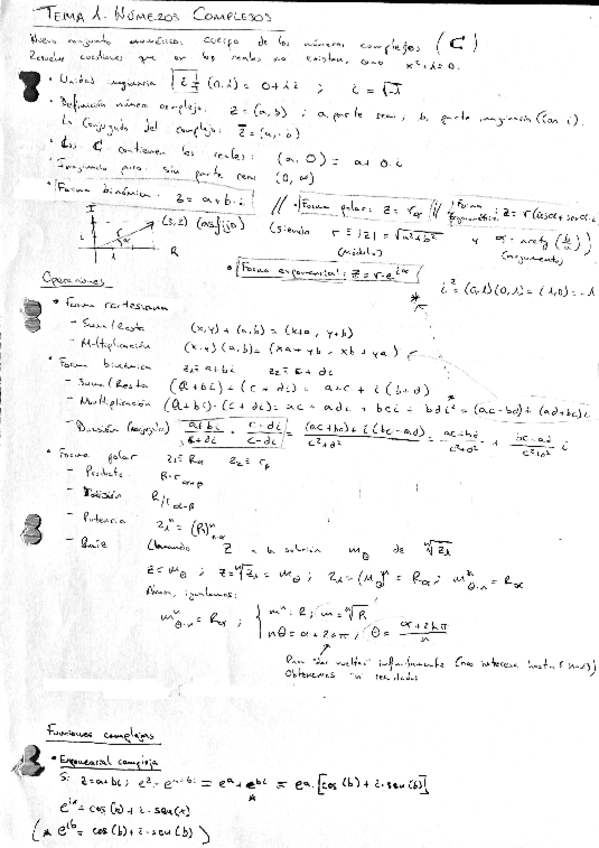 TEMA 1. NÚMEROS COMPLEJOS
Nuevo conjunto numérico: cuerpo de los números complejos (ℂ)
Resuelve cuestiones que en los reales no existen, como x²+1=0.
• Unidad imaginaria i = (0,1) = 0+1i ; i = √-1
• Definición número complejo: z = (a,b) ; a parte real, b parte imaginaria (con i).
Conjugado del complejo: z̄ =
• Los ℂ contienen los reales: (a,0) = a+0·i
• Imaginario puro: sin parte real
• Forma binómica: z = a+b·i // • Forma polar: z = r_α // Forma trigonométrica: z = r(cosα + senα·i)
I (3,2) (afijo) (siendo r = |z| = √a²+b² y α = arctg (b/a))
i r α 1 R (módulo) (argumento)
• Forma exponencial: z = r·e^iα
* i² = (0,1)(0,1) = (-1,0) = -1
Operaciones
• Forma cartesiana
- Suma/Resta (x,y) + (a,b) = (x+a, y+b)
- Multiplicación (x,y)(a,b) = (xa - yb, xb + ya)
• Forma binómica z₁ = a+bi z₂ = c+di
- Suma/Resta (a+bi) + (c+di) = a+c + i(b+d)
- Multiplicación (a+bi)·(c+di) = ac + adi + bci + bdi² = (ac-bd) + (ad+bc)i
- División (conjugado) a+bi/c+di · c-di/c-di = (ac+bd)+i(bc-ad)/c²+d² = ac+bd/c²+d² + bc-ad/c²+d² i
• Forma polar z₁ = R_α z₂ = r_β
- Producto R·r_α+β
- División R/r_α-β
- Potencia z₁ⁿ = (R)ⁿ_n·α
- Raíz Llamando z a la solución m_θ de ⁿ√z₁
z = m_θ ; z = ⁿ√z₁ = m_θ ; z₁ = (m_θ)ⁿ = R_α ; mⁿ_θ·n = R_α
Ahora, igualamos:
mⁿ_θ·n = R_α ; { mⁿ = R ; m = ⁿ√R
nθ = α+2kπ ; θ = α+2kπ/n
Para "dar vueltas" infinitamente
Obtenemos "n" resultados
Funciones complejas
• Exponencial compleja
Si z = a+bi ; e^z = e^a+bi = e^a + e^bi = e^a·[cos(b) + i·sen(b)]
*
e^ix = cos(x) + i·sen(x)
(* e^ib = cos(b) + i·sen(b))